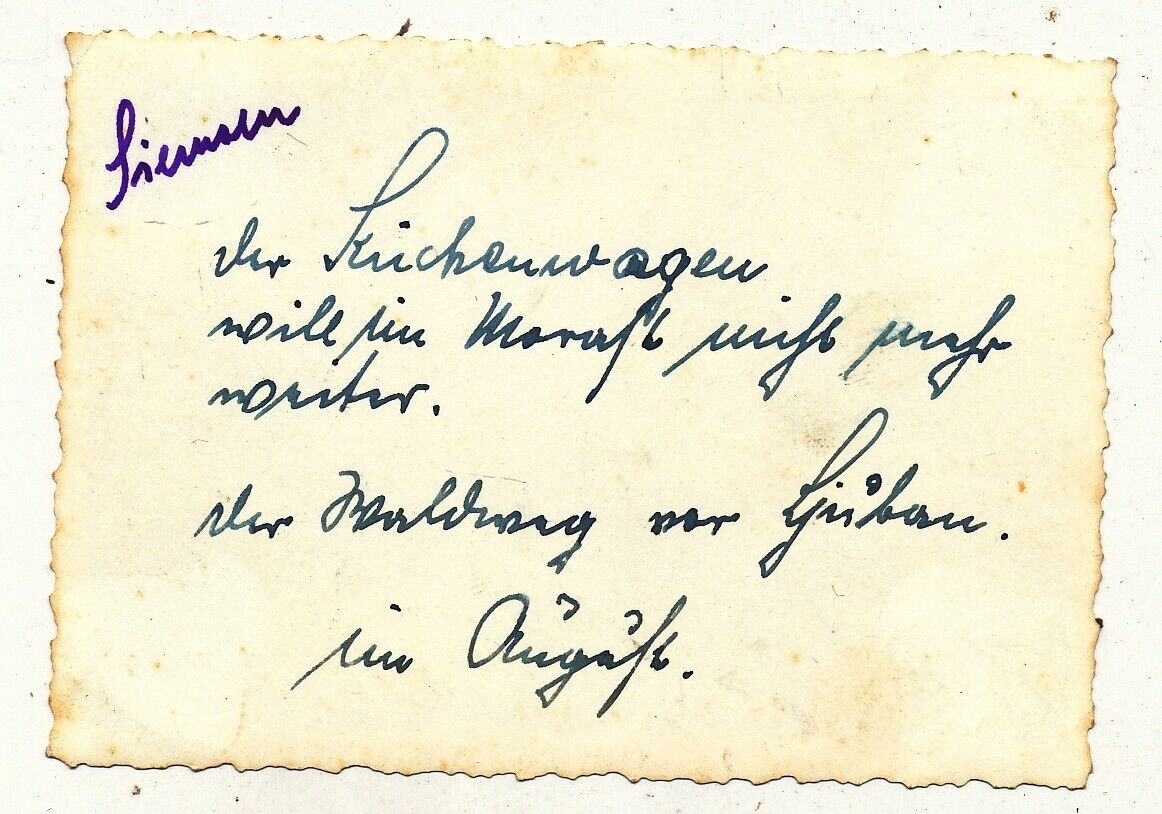 Siemsen
der Küchenwagen
will im Morast nicht mehr
weiter.
der Waldweg vor Ljuban.
im August.